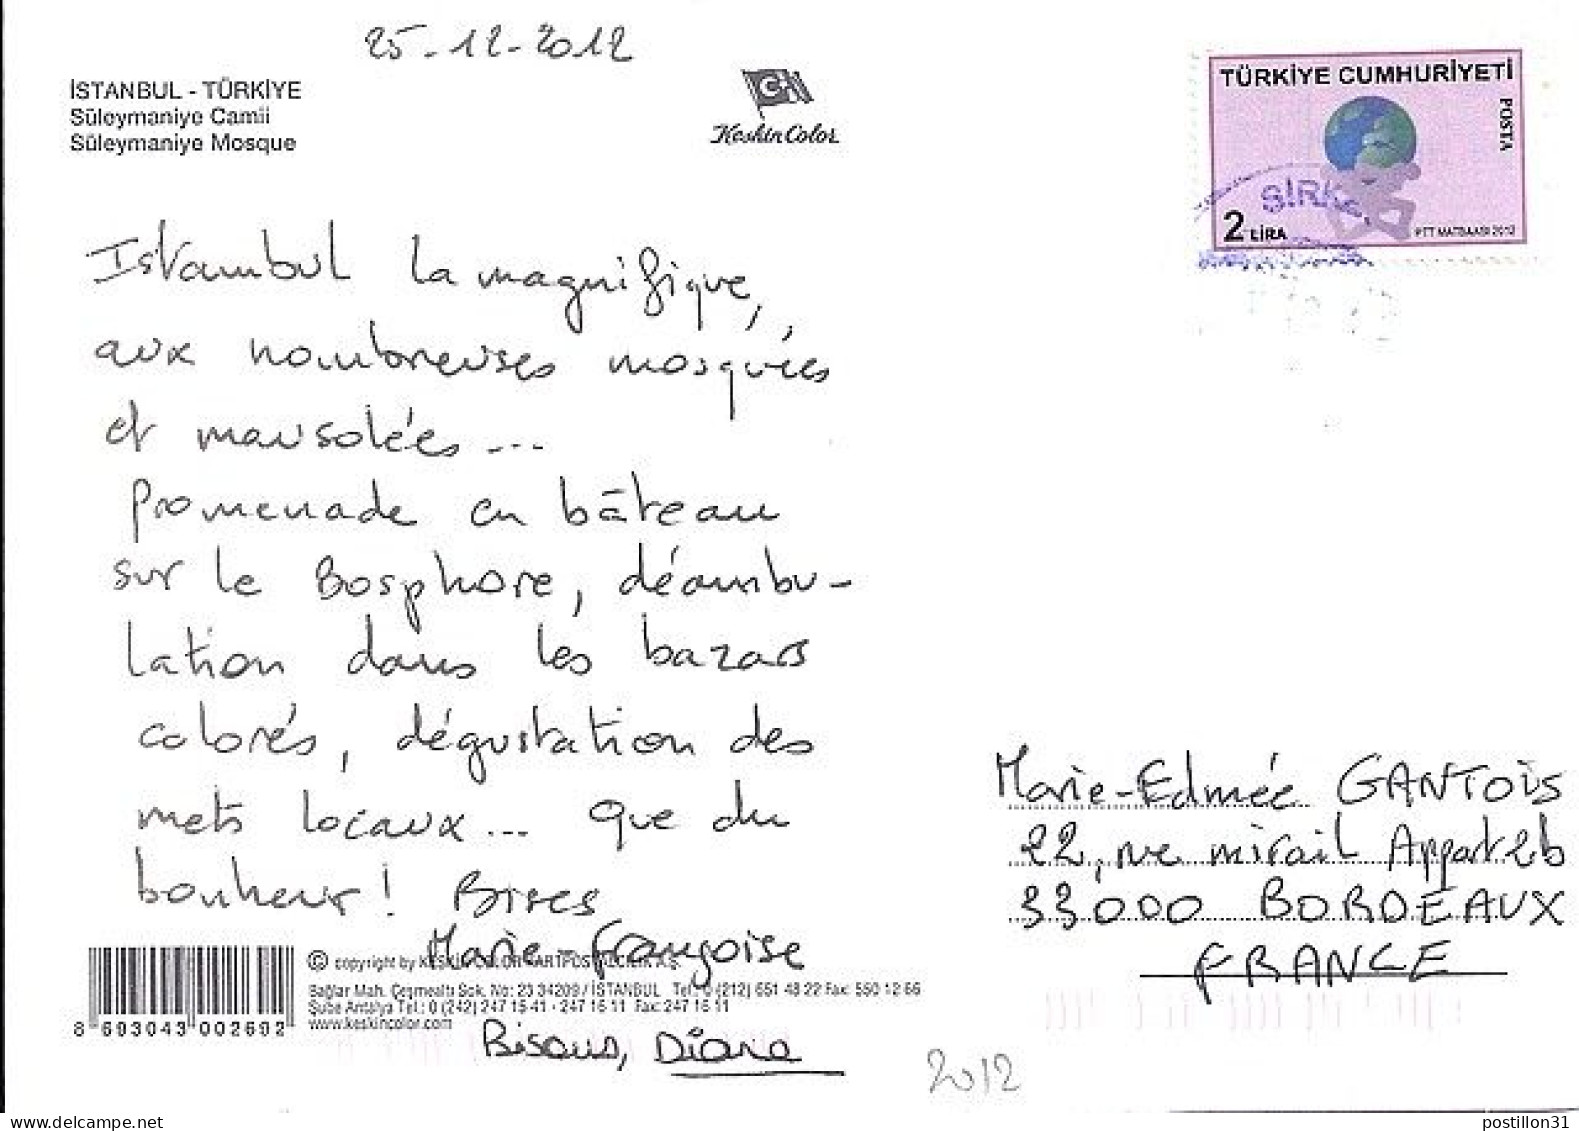 25-12-2012
İSTANBUL - TÜRKİYE
Süleymaniye Camii
Süleymaniye Mosque
Keskin Color
TÜRKİYE CUMHURİYETİ
POSTA
SİRK
2 LİRA
PTT MATBAASI 2012
Istambul la magnifique,
aux nombreuses mosquées
et mausolées...
Promenade en bâteau
sur le Bosphore, déambu-
lation dans les bazars
colorés, dégustation des
mets locaux... que du
bonheur! Bises
Marie-Françoise
Bisous, Diana
Marie-Edmée GANTOIS
22, rue mirail Appart 2b
33000 BORDEAUX
FRANCE
© copyright by KESKİN COLOR KARTPOSTALCILIK A.Ş.
Sağlar Mah. Çeşmealtı Sok. No: 23 34209 / İSTANBUL Tel: 0 (212) 651 48 22 Fax: 550 12 66
Şube Antalya Tel.: 0 (242) 247 15 41 - 247 16 11 Fax: 247 16 11
www.keskincolor.com
8 693043 002602
2012
www.delcampe.net
postillon31